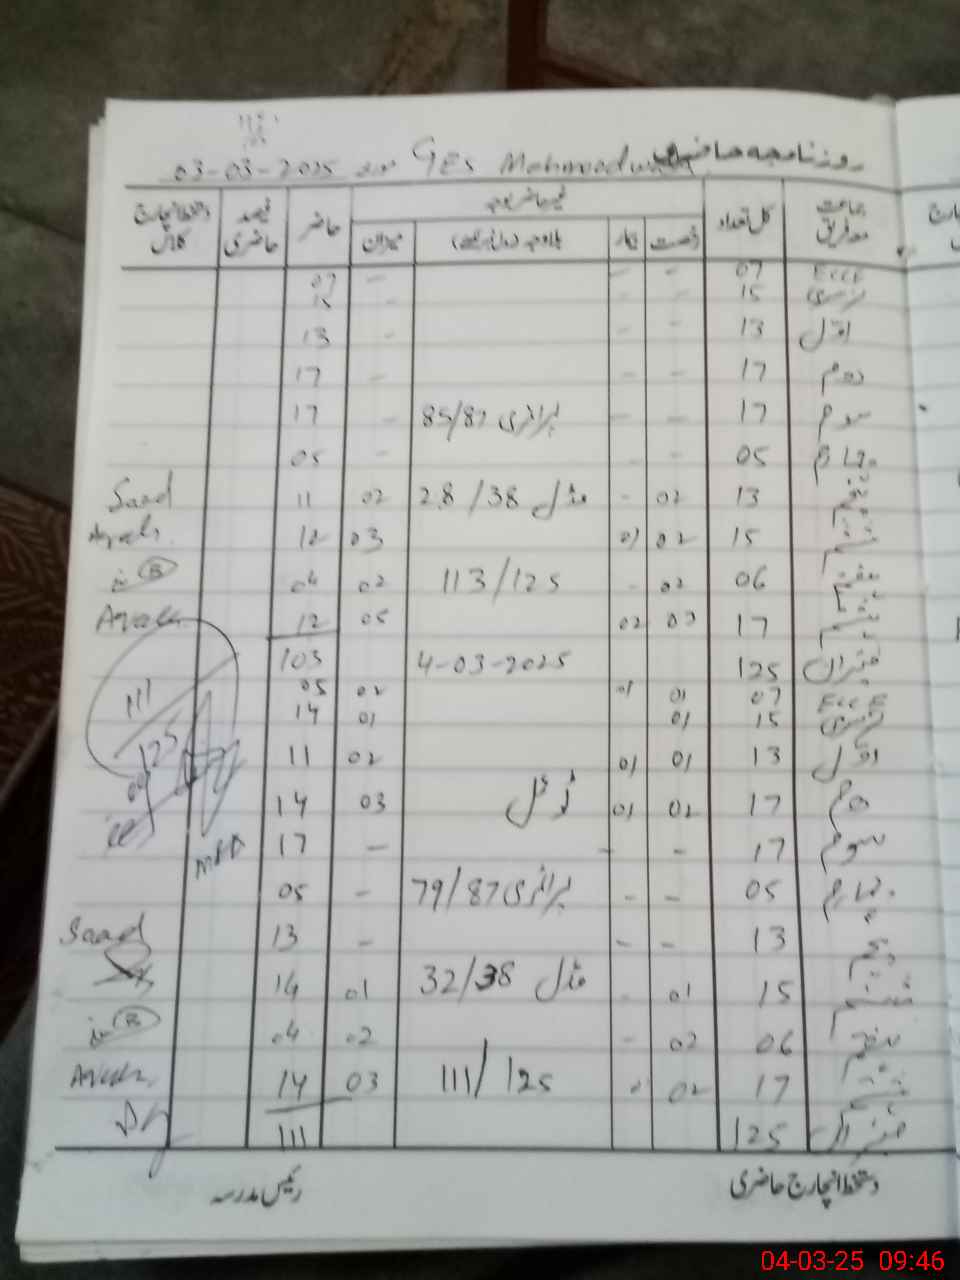 روزنامچہ حاضری GES Mahmood 03-03-2025
جماعت معہ فریق کل تعداد غیر حاضر بوجہ حاضر فیصد حاضری دستخط انچارج کلاس
رخصت بیمار بلاوجہ میزان
ECCE 07 - - - 07
نرسری 15 - - - 15
اول 13 - - - 13
دوم 17 - - - 17
سوم 17 - - پرائمری 85/87 - 17
چہارم 05 - - - 05
پنجم 13 02 - مڈل 28/38 02 11 Saad
ششم 15 02 01 03 12
ہفتم 06 02 - 113/125 02 04
ہشتم 17 03 02 05 12
میزان 125 4-03-2025 103
ECCE 07 01 01 02 05
نرسری 15 01 01 14
اول 13 01 01 02 11
دوم 17 02 01 ٹوٹل 03 14
سوم 17 - - - 17
چہارم 05 - - پرائمری 79/87 - 05
پنجم 13 - - - 13 Saad
ششم 15 01 - مڈل 32/38 01 14
ہفتم 06 02 - 02 04
ہشتم 17 02 111/125 03 14
میزان 125 111
111
125
دستخط انچارج حاضری رئیس مدرسہ
04-03-25 09:46